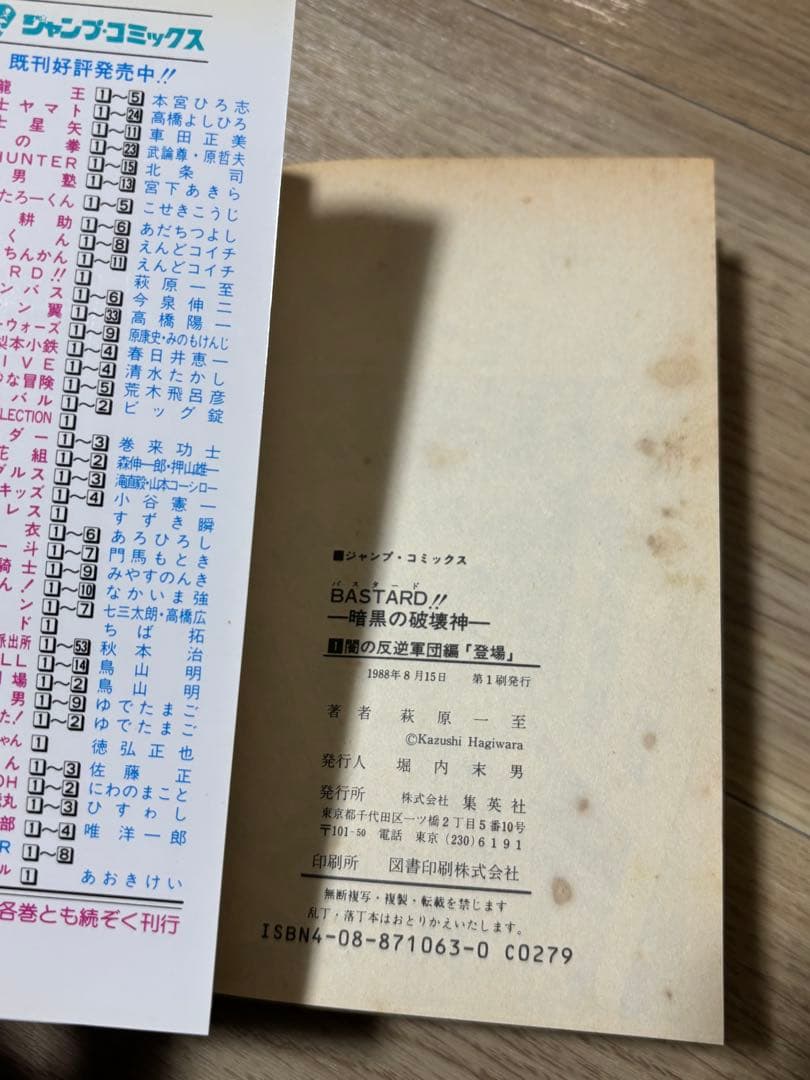 ジャンプ・コミックス
既刊好評発売中!!
龍王 1〜5 本宮ひろ志
士ヤマト 1〜24 高橋よしひろ
士星矢 1〜11 車田正美
の拳 1〜23 武論尊・原哲夫
HUNTER 1〜15 北条司
男塾 1〜13 宮下あきら
たろーくん 1〜5 こせきこうじ
耕助 1〜6 あだちつよし
くん 1〜8 えんどコイチ
ちんかん 1〜11 えんどコイチ
ARD!! 1 萩原一至
ンバス 1〜6 今泉伸二
ン翼 1〜33 高橋陽一
ーウォーズ 1〜9 原康史・みのもけんじ
梨本小鉄 1〜4 春日井恵一
IVE 1〜4 清水たかし
な冒険 1〜5 荒木飛呂彦
バル 1〜2 ビッグ錠
LECTION 1
ダー 1〜3 巻来功士
花組 1〜2 森伸一郎・押山雄一
グルス 1〜3 滝直毅・山本コーシロー
キッズ 1〜4 小谷憲一
レス 1 すずき瞬
衣 1〜6 あろひろし
ー斗 1〜7 門馬もとき
騎士 1〜9 みやすのんき
ん! 1〜10 なかいま強
ン 1〜7 七三太朗・高橋広
ド 1 ちば拓
派出所 1〜53 秋本治
LL 1〜14 鳥山明
劇場 1〜2 鳥山明
男 1〜9 ゆでたまご
た! 1〜2 ゆでたまご
ゃん 1 徳弘正也
ん 1〜3 佐藤正
OH 1〜2 にわのまこと
丸 1〜3 ひすわし
部 1〜4 唯洋一郎
R 1〜8
ル 1 あおきけい
各巻とも続ぞく刊行
■ジャンプ・コミックス
バスタード
BASTARD!!
—暗黒の破壊神—
1闇の反逆軍団編「登場」
1988年8月15日 第1刷発行
著者 萩原一至
©Kazushi Hagiwara
発行人 堀内末男
発行所 株式会社 集英社
東京都千代田区一ツ橋2丁目5番10号
〒101-50 電話 東京(230)6191
印刷所 図書印刷株式会社
無断複写・複製・転載を禁じます
乱丁・落丁本はおとりかえいたします。
ISBN4-08-871063-0 C0279